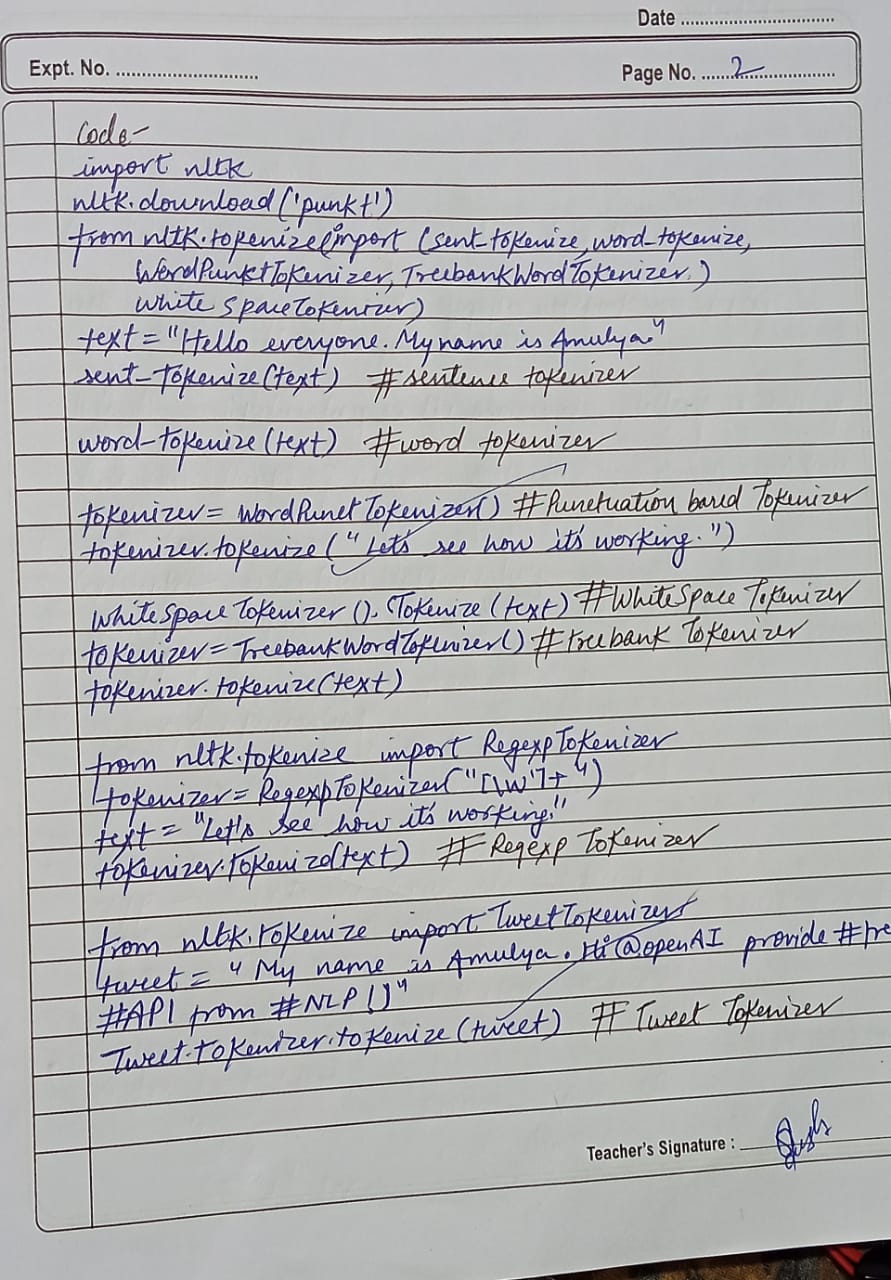 Date
Expt. No.
Page No. 2
Code-
import nltk
nltk.download('punkt')
from nltk.tokenize import (sent-tokenize, word-tokenize,
WordPunktTokenizer, TreebankWordTokenizer,)
White SpaceTokenizer)
text = "Hello everyone. My name is Amulya."
sent-Tokenize(text) #sentence tokenizer
word-tokenize(text) #word tokenizer
tokenizer = WordPunctTokenizer() #Punctuation based Tokenizer
tokenizer.tokenize("Let's see how it's working.")
whiteSpace Tokenizer().Tokenize(text) #WhiteSpace Tokenizer
tokenizer = TreebankWordTokenizer() #treebank Tokenizer
tokenizer.tokenize(text)
from nltk.tokenize import RegexpTokenizer
tokenizer = RegexpTokenizer("[\w']+")
text = "Let's see how it's working."
tokenizer.Tokenize(text) #Regexp Tokenizer
from nltk.tokenize import TweetTokenizer
tweet = "My name is Amulya. Hi @openAI provide #fre
#API from #NLP!)"
Tweet.tokenizer.tokenize(tweet) #Tweet Tokenizer
Teacher's Signature :